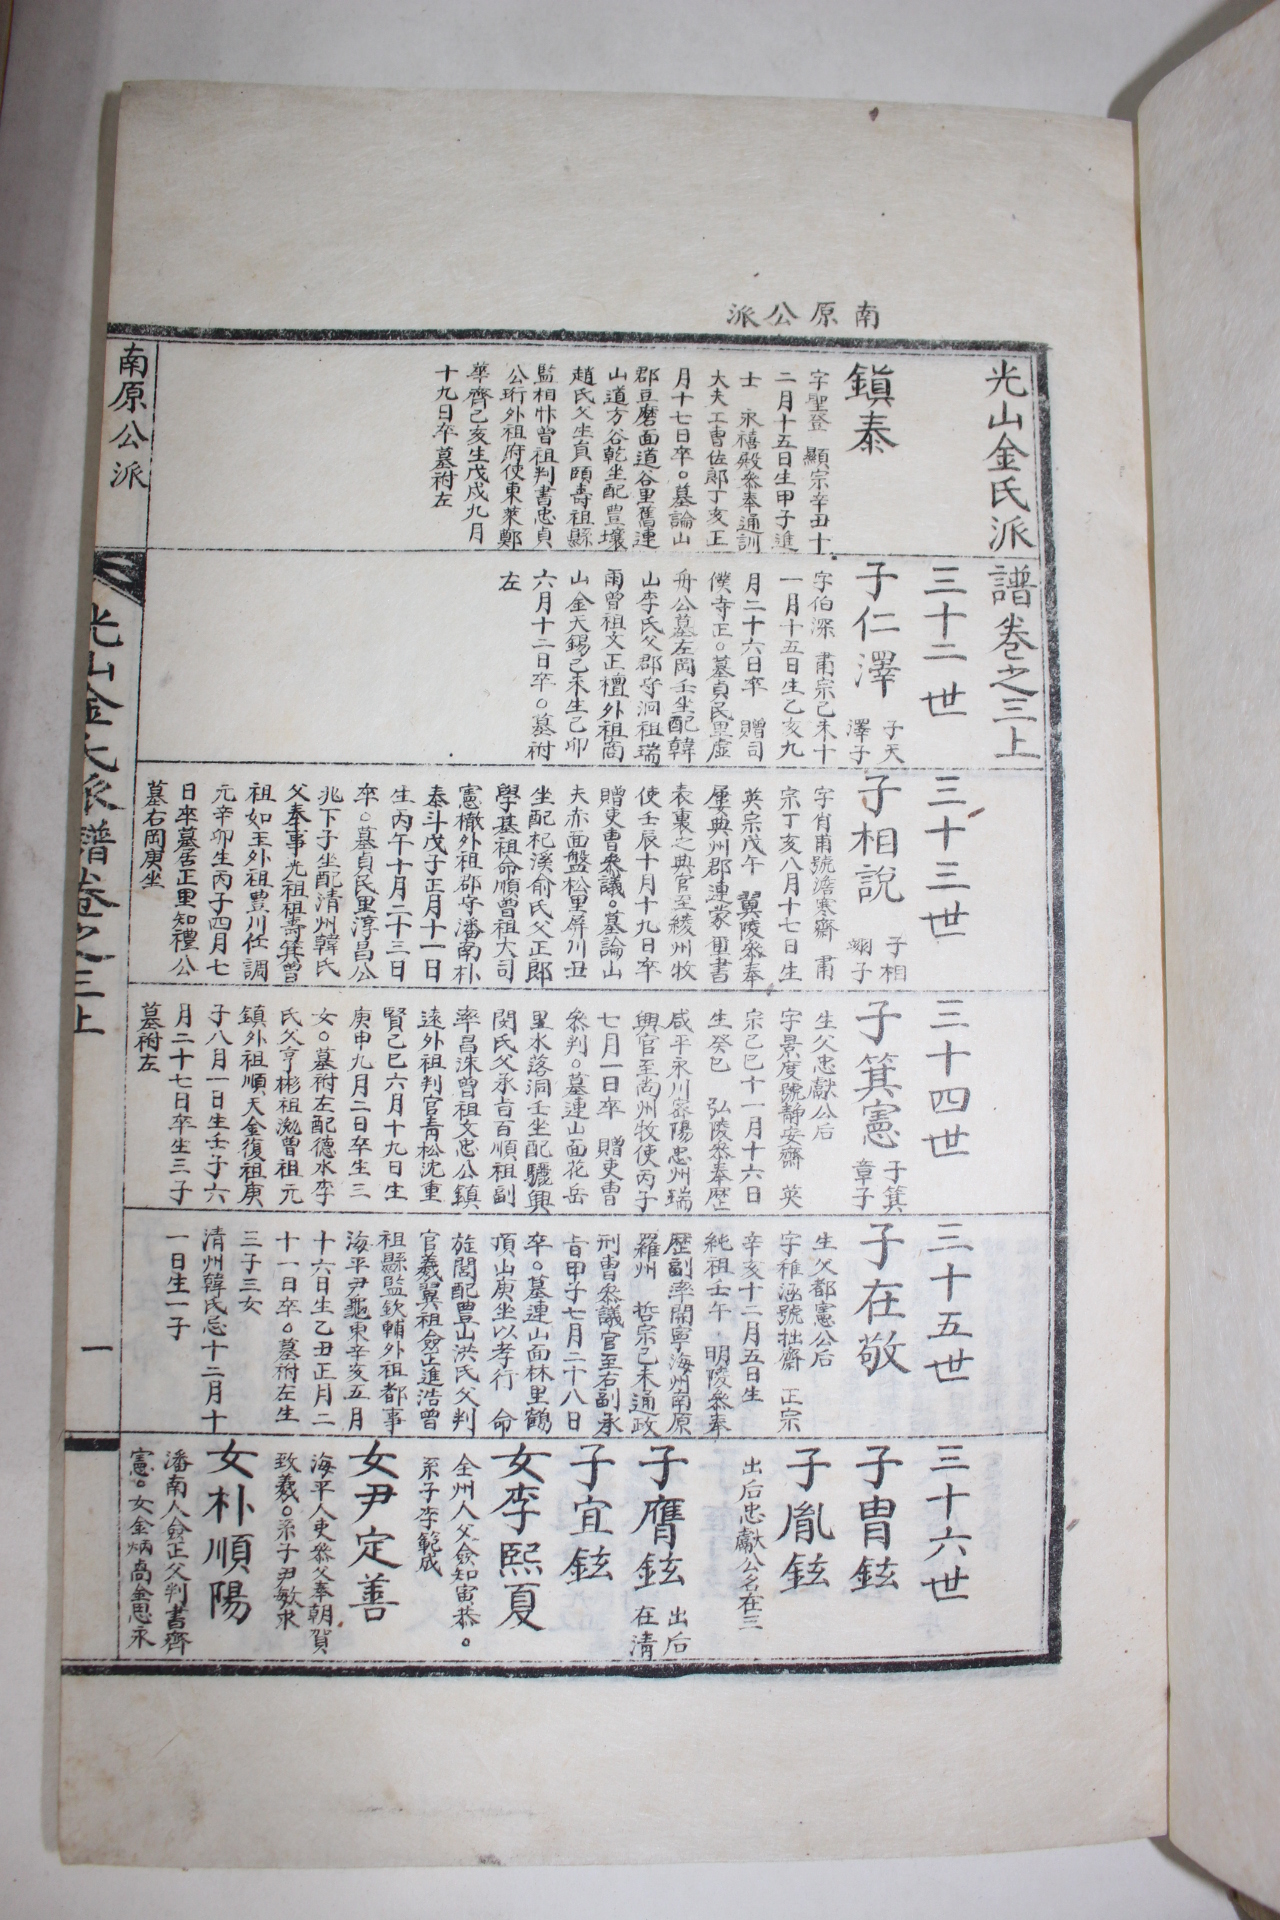 南原公派
光山金氏派譜卷之三上
鎭泰
字聖登 顯宗辛丑十
二月十五日生甲子進
士 永禧殿叅奉通訓
大夫工曹佐郞丁亥正
月十七日卒○墓論山
郡豆磨面道谷里舊連
山道方谷乾坐配豊壤
趙氏父生員頤壽祖縣
監相忭曾祖判書忠貞
公珩外祖府使東萊鄭
華齊己亥生戊戌九月
十九日卒墓祔左
三十二世
子仁澤
子天
澤子
字伯深 肅宗己未十
一月十五日生乙亥九
月二十六日卒 贈司
僕寺正○墓貞民里虛
舟公墓左岡壬坐配韓
山李氏父郡守泂祖瑞
雨曾祖文正檀外祖商
山金天錫己未生己卯
六月十二日卒○墓祔
左
三十三世
子相說
子相
翊子
字肖甫號澹寒齋 肅
宗丁亥八月十七日生
英宗戊午 翼陵叅奉
屢典州郡連蒙 璽書
表裏之典官至綾州牧
使壬辰十月十九日卒
贈吏曹叅議○墓論山
夫赤面盤松里屛川丑
坐配杞溪俞氏父正郞
學基祖命順曾祖大司
憲㯙外祖郡守潘南朴
泰斗戊子正月十一日
生丙午十月二十三日
卒○墓貞民里淳昌公
兆下子坐配清州韓氏
父奉事光祖祖壽箕曾
祖如玉外祖豊川任調
元辛卯生丙子四月七
日卒墓居正里知禮公
墓右岡庚坐
三十四世
子箕憲
子箕
章子
生父忠獻公后
字景度號靜安齋 英
宗己巳十一月十六日
生癸巳 弘陵叅奉歷
咸平永川密陽忠州瑞
興官至尙州牧使丙子
七月一日卒 贈吏曹
叅判○墓連山面花岳
里水落洞壬坐配驪興
閔氏父承旨百順祖副
率昌洙曾祖文忠公鎭
遠外祖判官靑松沈重
賢己巳六月十九日生
庚申九月二日卒生三
女○墓祔左配德水李
氏父亨彬祖泓曾祖元
鎭外祖順天金復祖庚
子八月一日生壬子六
月二十七日卒生三子
墓祔左
三十五世
子在敬
生父都憲公后
字稚涵號拙齋 正宗
辛亥十二月五日生
純祖壬午 明陵叅奉
歷副率開寧海州南原
羅州 哲宗己未通政
刑曹叅議官至右副承
旨甲子七月二十八日
卒○墓連山面林里鶴
頂山庚坐以孝行 命
旌閭配豊山洪氏父判
官羲翼祖僉正進浩曾
祖縣監欽輔外祖都事
海平尹魯東辛亥五月
十六日生乙丑正月二
十一日卒○墓祔左生
三子三女
清州韓氏忌十二月十
一日生一子
三十六世
子胄鉉
子胤鉉
出后忠獻公名在三
子膺鉉
出后
在清
子宜鉉
女李熙夏
全州人父僉知寅恭○
系子李範成
女尹定善
海平人吏叅父奉朝賀
致羲○系子尹敏求
女朴順陽
潘南人僉正父判書齊
憲○女金炳㖯金思永
南原公派
光山金氏派譜卷之三上
一